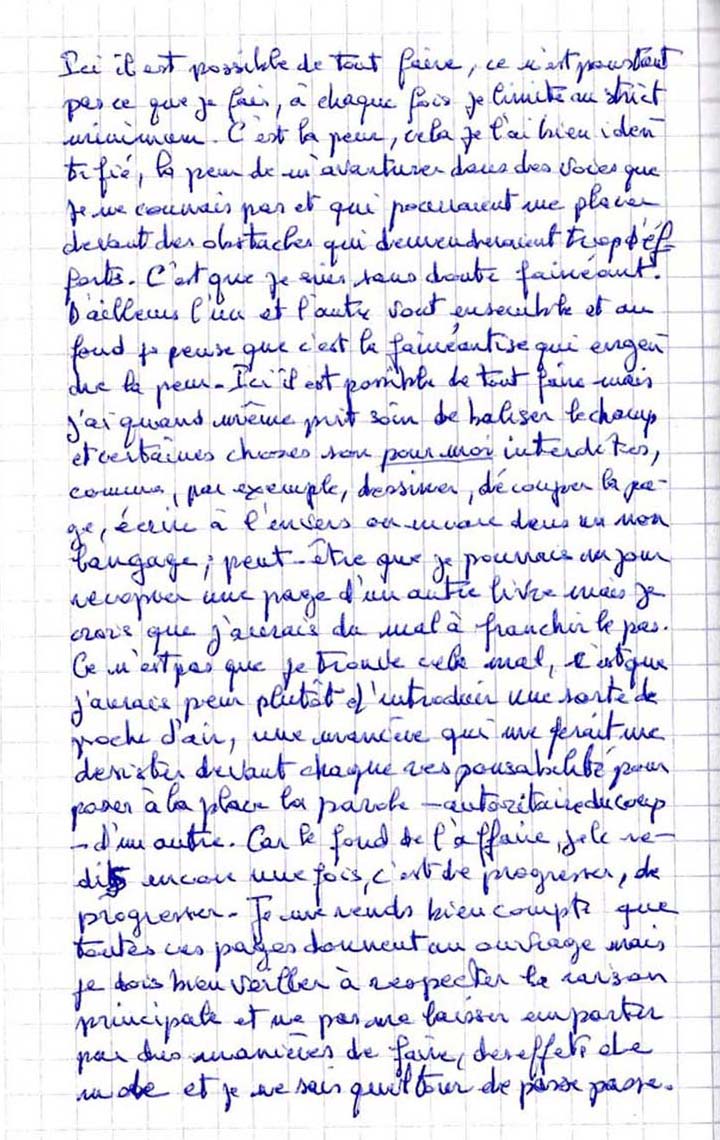 Ici il est possible de tout faire, ce n'est pourtant
pas ce que je fais, à chaque fois je limite au strict
minimum. C'est la peur, cela je l'ai bien iden
tifié, la peur de m'avanturer dans des voies que
je ne connais pas et qui pourraient me placer
devant des obstacles qui demenderaient trop d'éf-
forts. C'est que je suis sans doute fainéant.
D'ailleurs l'un et l'autre vont ensemble et au
fond je pense que c'est la fainéantise qui engen
dre la peur. Ici il est possible de tout faire mais
j'ai quand même prit soin de baliser le champ
et certaines choses son pour moi interdites,
comme, par exemple, dessiner, découper la pa-
ge, écrire à l'envers ou encore dans un non
langage ; peut-être que je pourrais un jour
recopier une page d'un autre livre mais je
crois que j'aurais du mal à franchir le pas.
Ce n'est pas que je trouve cela mal, c'est que
j'aurais peur plutôt d'introduir une sorte de
poche d'air, une manière qui me ferait me
desister devant chaque responsabilité pour
poser à la place la parole - autoritaire du coup
- d'un autre. Car le fond de l'affaire, je le re-
dis encore une fois, c'est de progresser, de
progresser. Je me rends bien compte que
toutes ces pages donnent un ouvrage mais
je dois bien veiller à respecter la raison
principale et ne pas me laisser emporter
par des manières de faire, des effets de
mode et je ne sais quel tour de passe passe.